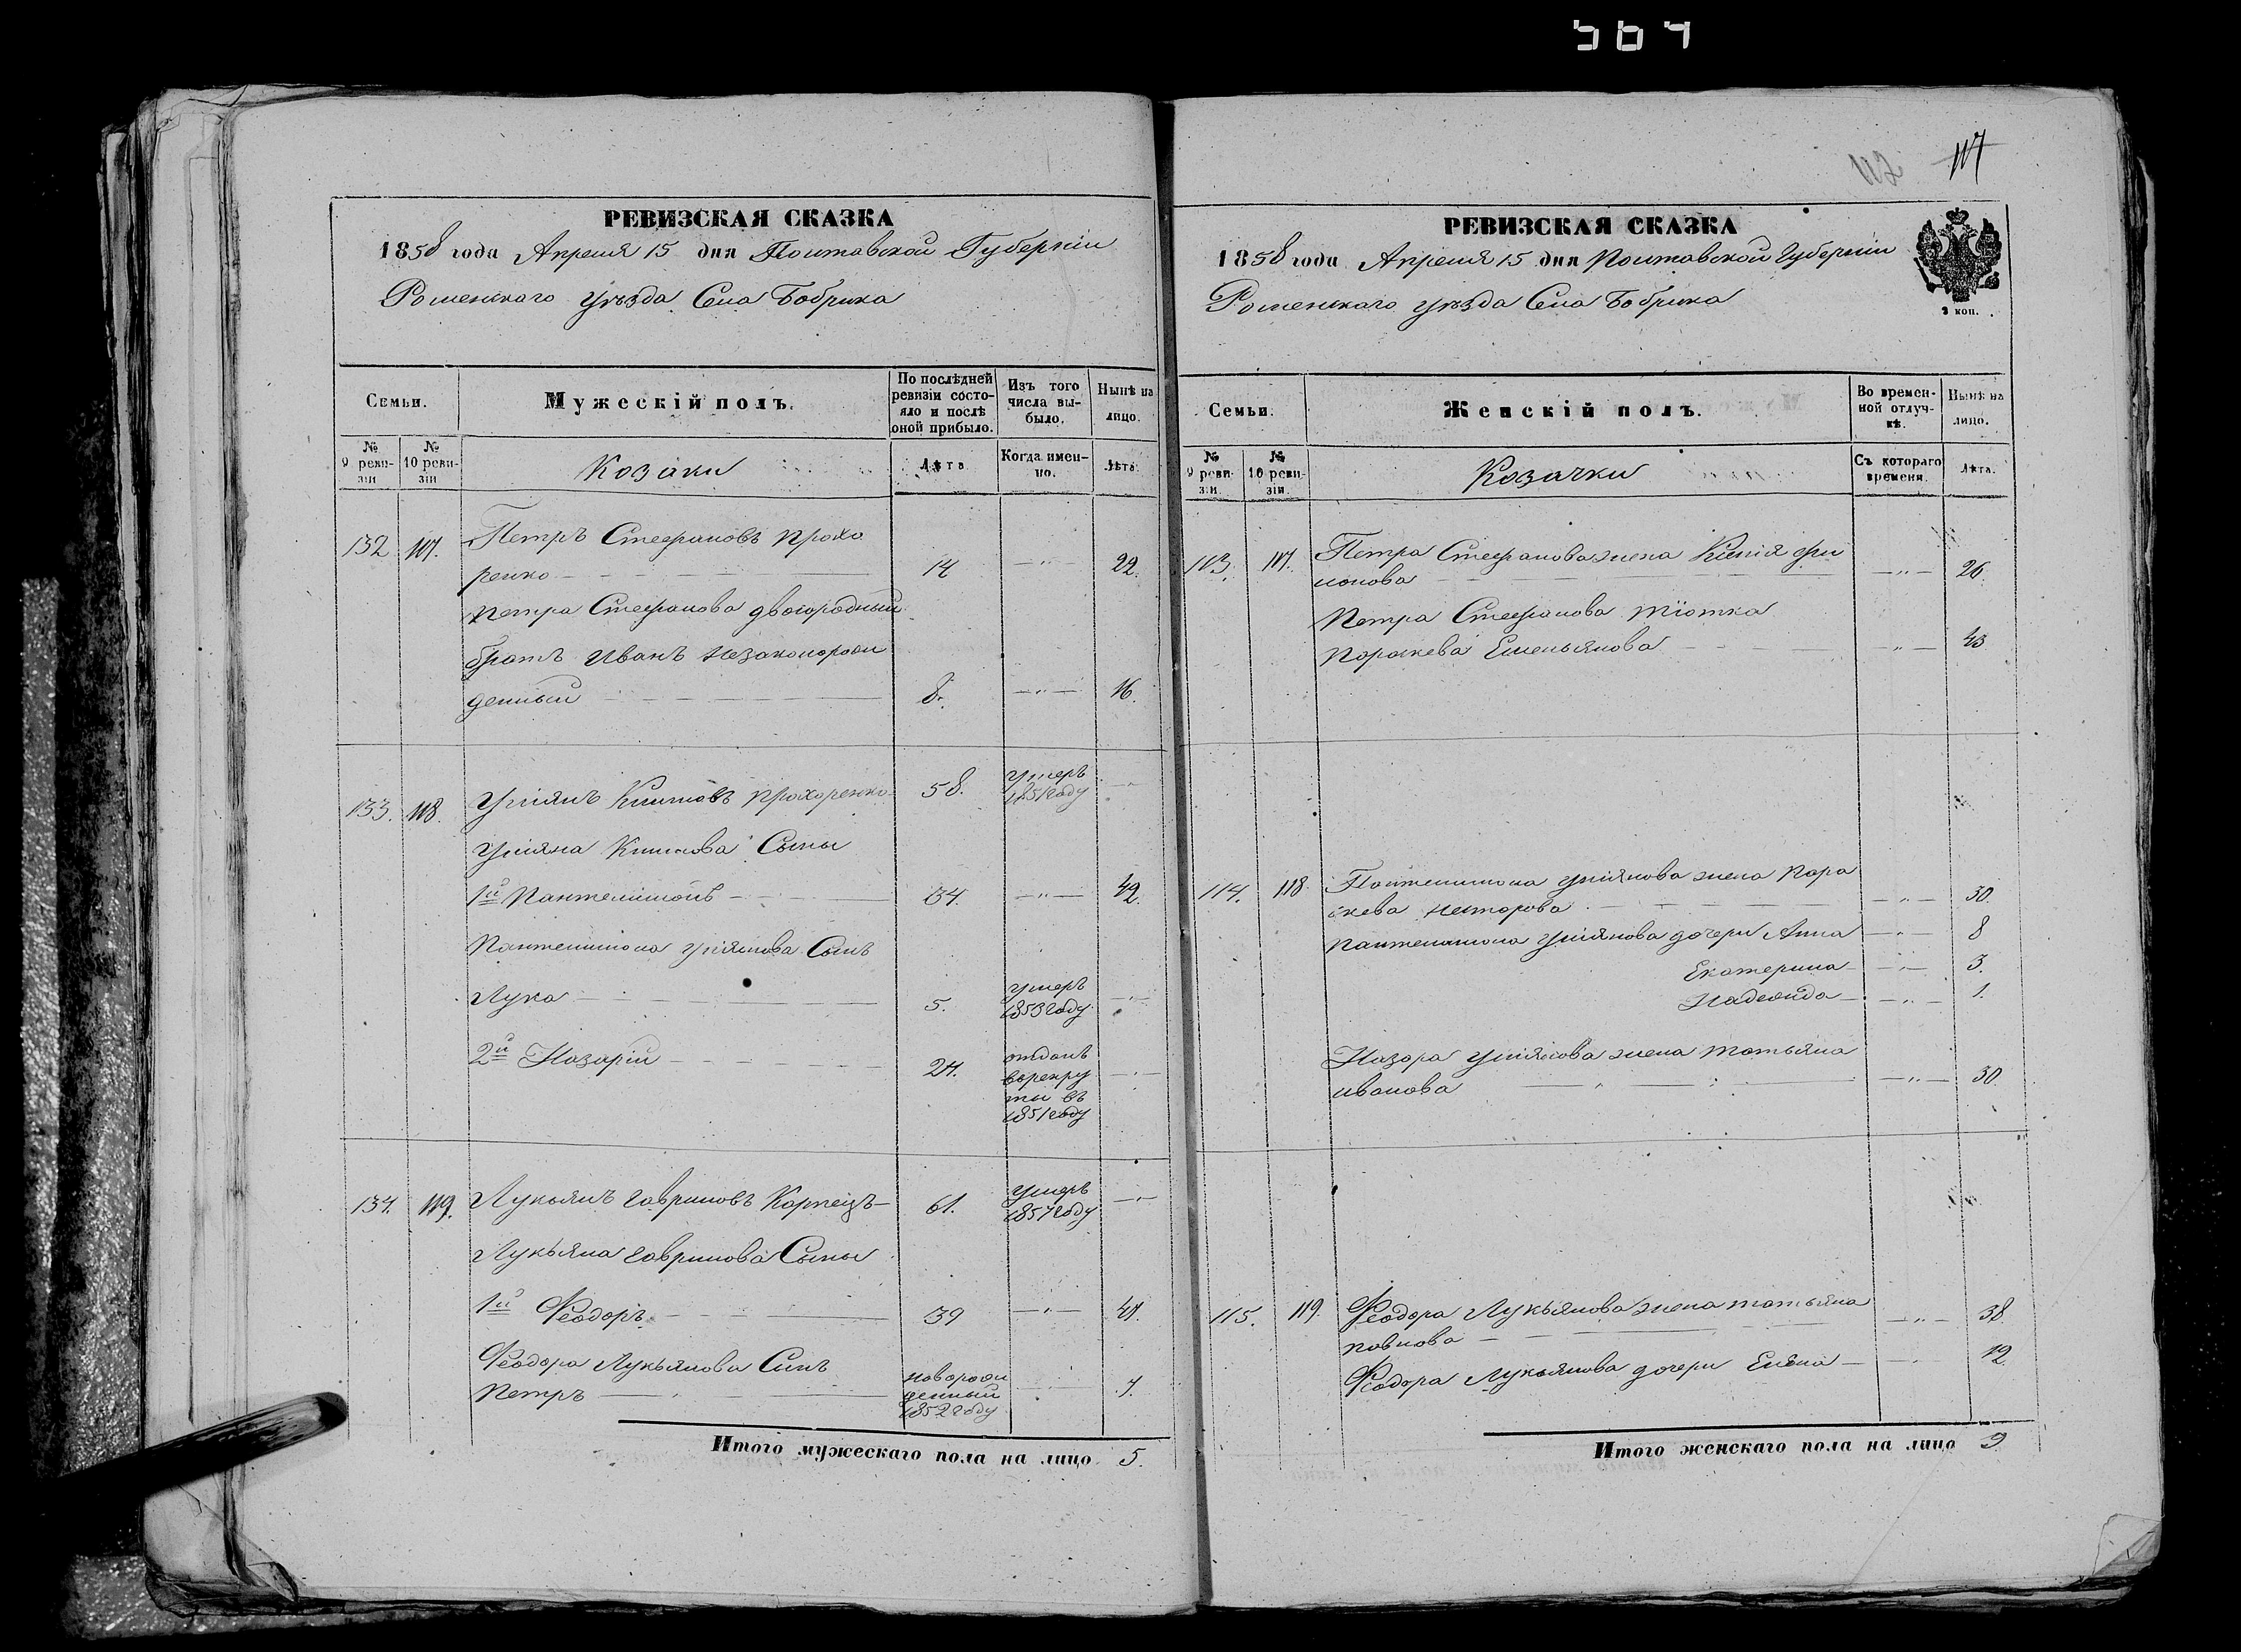 564
117
РЕВИЗСКАЯ СКАЗКА
1858 года Апреля 15 дня Полтавской Губерніи
Роменскаго уѣзда Села Бобрика
Семьи.
Мужескій полъ.
По послѣдней ревизіи состояло и послѣ оной прибыло.
Изъ того числа выбыло.
Нынѣ на лицо.
№ 9 ревизіи
№ 10 ревизіи
Козаки
Лѣта
Когда именно.
Лѣта
132 117. Петръ Стефановъ Прохо
ренко 14 —„— 22.
Петра Стефанова двоюродный
братъ Иванъ незаконорож
денный 8. —„— 16.
133. 118. Улiянъ Климовъ Прохоренко 58. умеръ 1851 году —„—
Улiяна Климова Сыны
1й Пантелимонъ 34. —„— 42.
Пантелимона Улiянова Сынъ
Лука 5. умеръ 1853 году —„—
2й Назарій 24. отданъ
в рекру
ты въ
1851 году
134. 119. Лукьянъ Гавриловъ Корпецъ 61. умеръ 1857 году —„—
Лукьяна Гаврилова Сыны
1й Феодоръ 39 —„— 47.
Феодора Лукьянова Сынъ
Петръ новорож
денный
1852 году 7.
Итого мужескаго пола на лицо 5.
РЕВИЗСКАЯ СКАЗКА
1858 года Апреля 15 дня Полтавской Губерніи
Роменскаго уѣзда Села Бобрика
2 коп.
Семьи.
Женскій полъ.
Во временной отлучкѣ.
Нынѣ на лицо.
№ 9 ревизіи.
№ 10 ревизіи.
Козачки
Съ котораго времени.
Лѣта.
113. 117. Петра Стефанова жена Ксенія Фи
монова —„— 26.
Петра Стефанова тіотка
Параскева Емельянова —„— 43
114. 118. Пантелимона Улiянова жена Пара
скева Нестерова —„— 30.
Пантелимона Улiянова дочери Анна —„— 8
Екатерина —„— 3.
Надежда —„— 1.
Назара Улiянова жена Татьяна
Иванова —„— 30.
115. 119. Феодора Лукьянова жена Татьяна
Павлова —„— 38
Феодора Лукьянова дочери Елена —„— 12.
Итого женскаго пола на лицо 9